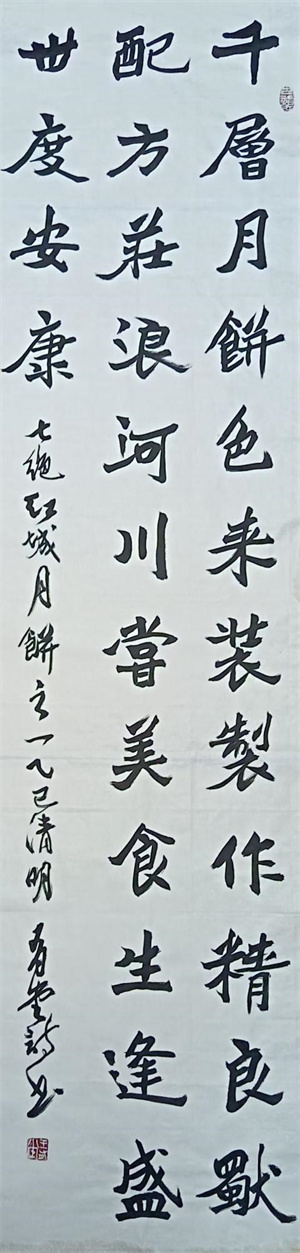 千層月餅色来装製作精良獻
配方莊浪河川嘗美食生逢盛
世度安康 七绝红城月餅之一乙巳清明 堂诗书